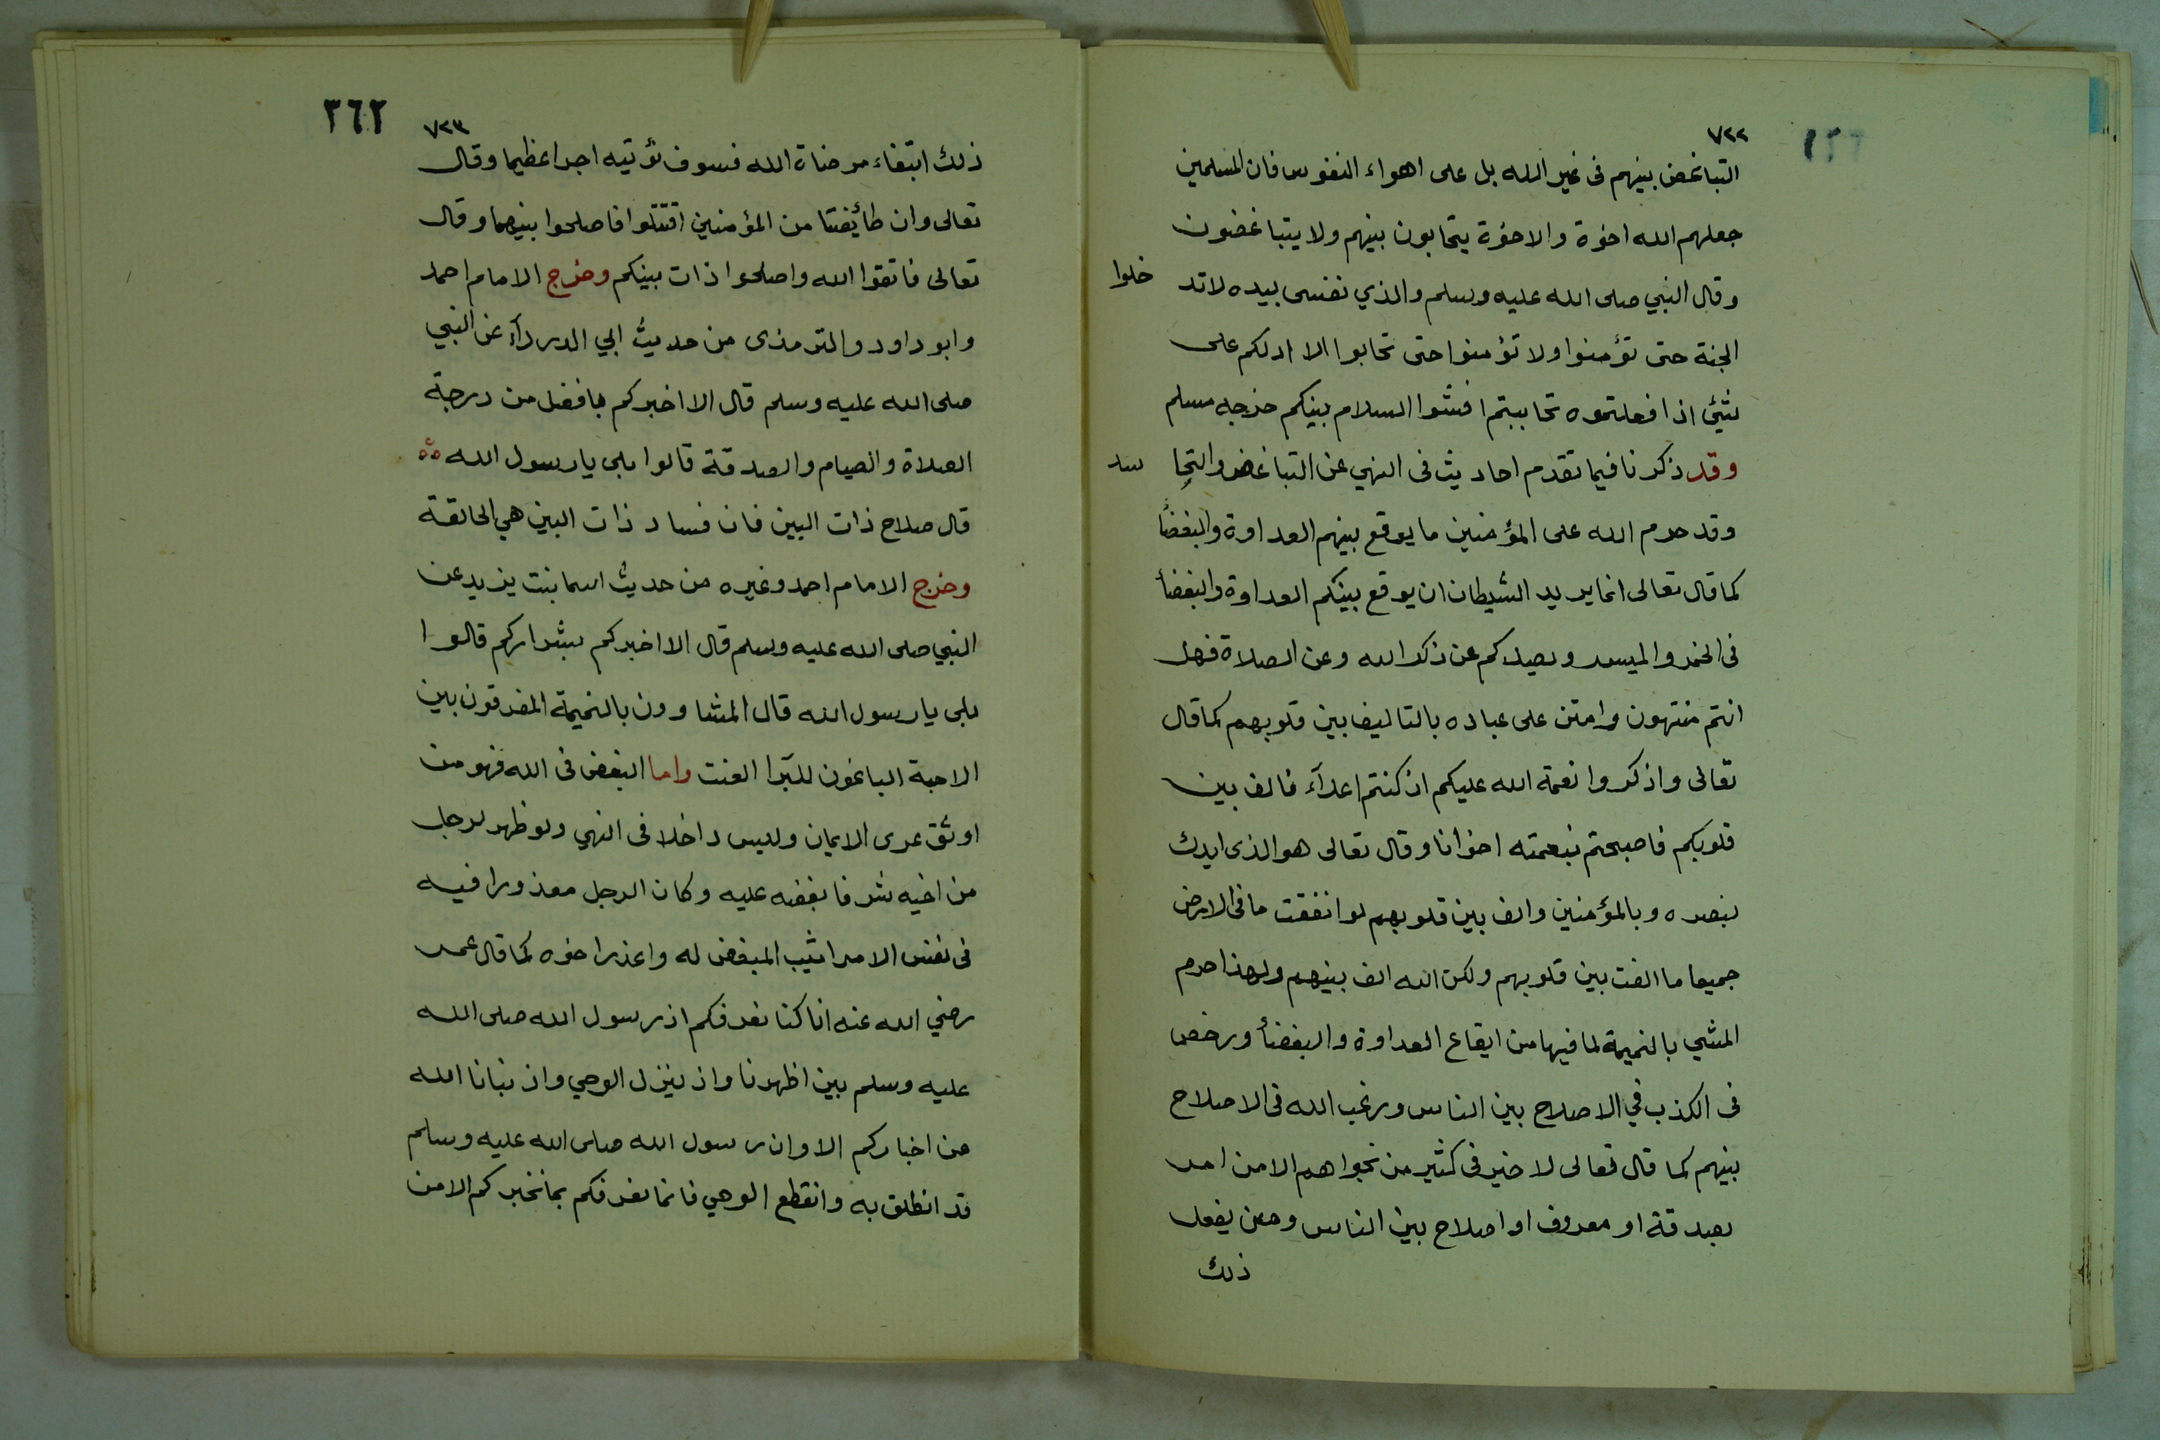 ٧٢٢
التباغض بينهم فى غير الله بل على اهواء النفوس فان المسلمين
جعلهم الله اخوة والاخوة يتحابون بينهم ولا يتباغضون
وقال النبي صلى الله عليه وسلم والذي نفسى بيده لا تد خلوا
الجنة حتى تؤمنوا ولا تؤمنوا حتى تحابوا الا ادلكم على
شئ اذا فعلتموه تحاببتم افشوا السلام بينكم خرجه مسلم
وقد ذكرنا فيما تقدم احاديث فى النهي عن التباغض والتحا سد
وقد حرم الله على المؤمنين ما يوقع بينهم العداوة والبغضأ
كما قال تعالى انما يريد الشيطان ان يوقع بينكم العداوة والبغضأ
فى الخمر والميسر ويصدكم عن ذكر الله وعن الصلاة فهل
انتم منتهون وامتن على عباده بالتاليف بين قلوبهم كما قال
تعالى واذكروا نعمة الله عليكم اذ كنتم اعدآء فالف بين
قلوبكم فاصبحتم بنعمته اخوانا وقال تعالى هو الذى ايدك
بنصره وبالمؤمنين والف بين قلوبهم لو انفقت ما فى الارض
جميعا ما الفت بين قلوبهم ولكن الله الف بينهم ولهذا حرم
المشي بالنميمة لما فيها من ايقاع العداوة والبغضأ ورخص
فى الكذب في الاصلاح بين الناس ورغب الله فى الاصلاح
بينهم كما قال تعالى لا خير فى كثير من نجواهم الا من امر
بصدقة او معروف او اصلاح بين الناس ومن يفعل
ذلك
٣٦٢
٧٢٣
ذلك ابتغاء مرضاة الله فسوف نؤتيه اجرا عظيما وقال
تعالى وان طائفتا من المؤمنين اقتتلوا فاصلحوا بينهما وقال
تعالى فاتقوا الله واصلحوا ذات بينكم وخرج الامام احمد
وابو داود والترمذى من حديث ابي الدردآء عن النبي
صلى الله عليه وسلم قال الا اخبركم بافضل من درجة
الصلاة والصيام والصدقة قالوا بلى يا رسول الله
قال صلاح ذات البين فان فساد ذات البين هي الحالقة
وخرج الامام احمد وغيره من حديث اسما بنت يزيد عن
النبي صلى الله عليه وسلم قال الا اخبركم بشراركم قالوا
بلى يا رسول الله قال المشاوون بالنميمة المفرقون بين
الاحبة الباغون للبرآ العنت واما البغض فى الله فهو من
اوثق عرى الايمان وليس داخلا فى النهي ولو ظهر لرجل
من اخيه شر فابغضه عليه وكان الرجل معذورا فيه
فى نفس الامر اثيب المبغض له واعذر اخوه كما قال عمر
رضي الله عنه انا كنا نعرفكم اذ رسول الله صلى الله
عليه وسلم بين اظهرنا واذ ينزل الوحي واذ نبانا الله
من اخباركم الا وان رسول الله صلى الله عليه وسلم
قد انطلق به وانقطع الوحي فانما نعرفكم بما نخبركم الا من